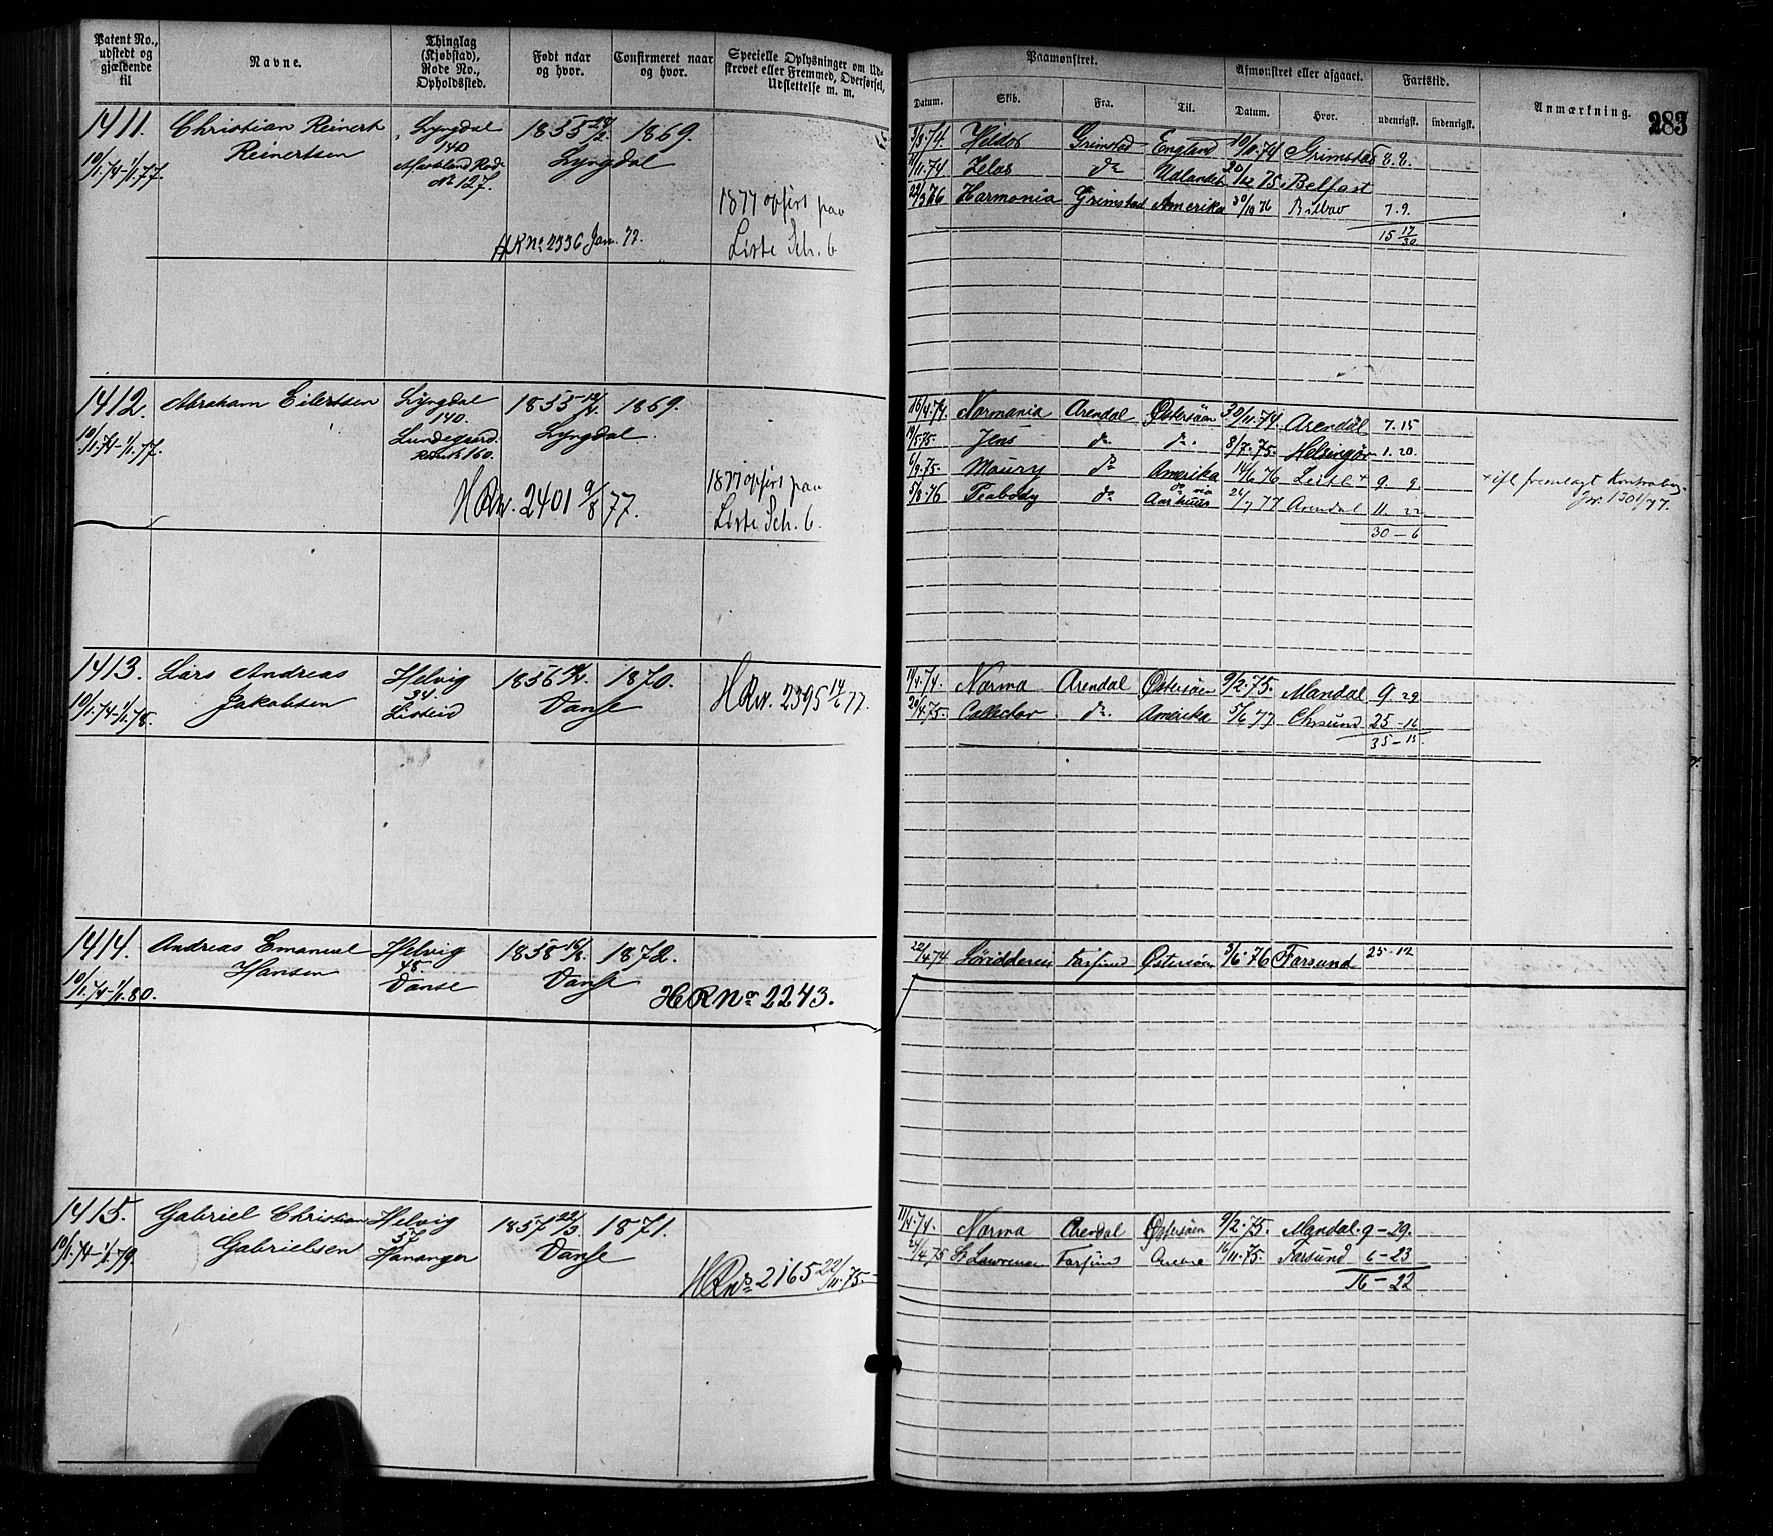 Patent No.,
udstedt og
gjældende
til
Navne.
Thinglag
(Kjøbstad),
Rode No.,
Opholdssted.
Født naar
og hvor.
Confirmeret naar
og hvor.
Specielle Oplysninger om Ud-
skrevet eller Fremmed, Overførsel,
Udslettelse m. m.
Paamønstret.
Datum.
Skib.
Fra.
Til.
Afmønstret eller afgaaet.
Datum.
Hvor.
Fartstid.
udenrigsk.
indenrigsk.
Anmærkning.
283
1411.
10/1.74-1/1.77.
Christian Reinert
Reinertsen
Lyngdal
140
No 127.
1855 24/2.
Lyngdal
1869.
HRNo 2336 Jan. 77.
1877 opfört paa
Liste Sch. 6
3/3.74. Grimstad England 10/11.74 Grimstad 8.8.
11/11.74 Zelas do Udlandet 20/12 75. Belfast
22/3 76 Harmonia Grimstad Amerika 30/10 76 Bilbao 7.9.
15 17/30
1412.
10/1.74-1/1.77.
Abraham Eilertsen
Lyngdal
140.
Lundegaard.
160.
1855 12/4.
Lyngdal
1869.
HRNr. 2401 9/8 77.
1877 opfört paa
Liste Sch. 6.
16/4.74. Normania Arendal Østersöen 30/11.74. Arendal 7.15
19/5 75. Jens do. do. 8/7.75. Helsingör 1.20.
6/9.75. Maury do Amerika 14/6 76 Leith + 9. 9.
5/8.76 Peabody do Aarhuus 26/7 77 Arendal 11. 22
30-6
+ ifl. fremlagt
Jr. 1301/77.
1413.
10/1.74-1/1.78.
Lars Andreas
Jakobsen
Helvig
34.
Listeid
1856
Vanse
1870.
HRNr. 2395 14/6 77.
11/4.74. Norma Arendal Østersöen 9/2.75. Mandal 9. 29
20/4.75. Collector do. Amerika 5/6 77 Chrsund 25-16
35-15.
1414.
10/1.74-1/1.80.
Andreas Emanuel
Hansen
Helvig
48.
Vanse
1858 16/8.
Vanse
1872.
HRNo 2243.
22/4 74 Farsund Østersöen 3/6.76 Farsund 25-12
1415.
10/1.74-1/1.79.
Gabriel Christian
Gabrielsen
Helvig
57
Hananger
1857 22/3
Vanse
1871.
HRNo 2165 22/11.75.
11/4.74. Norma Arendal Østersöen 9/2.75. Mandal. 9-29.
24/4 75 St Lawrence Farsund 16/11.75. Farsund 6-23
16-22